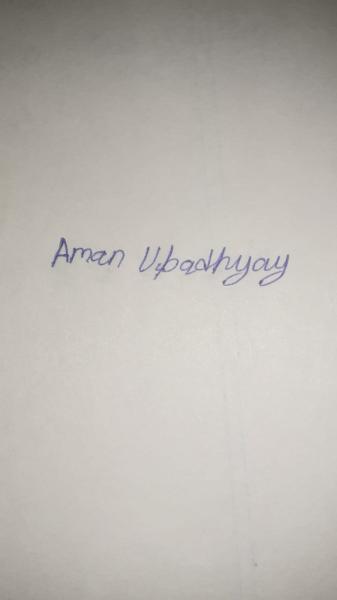 Aman Upadhyay